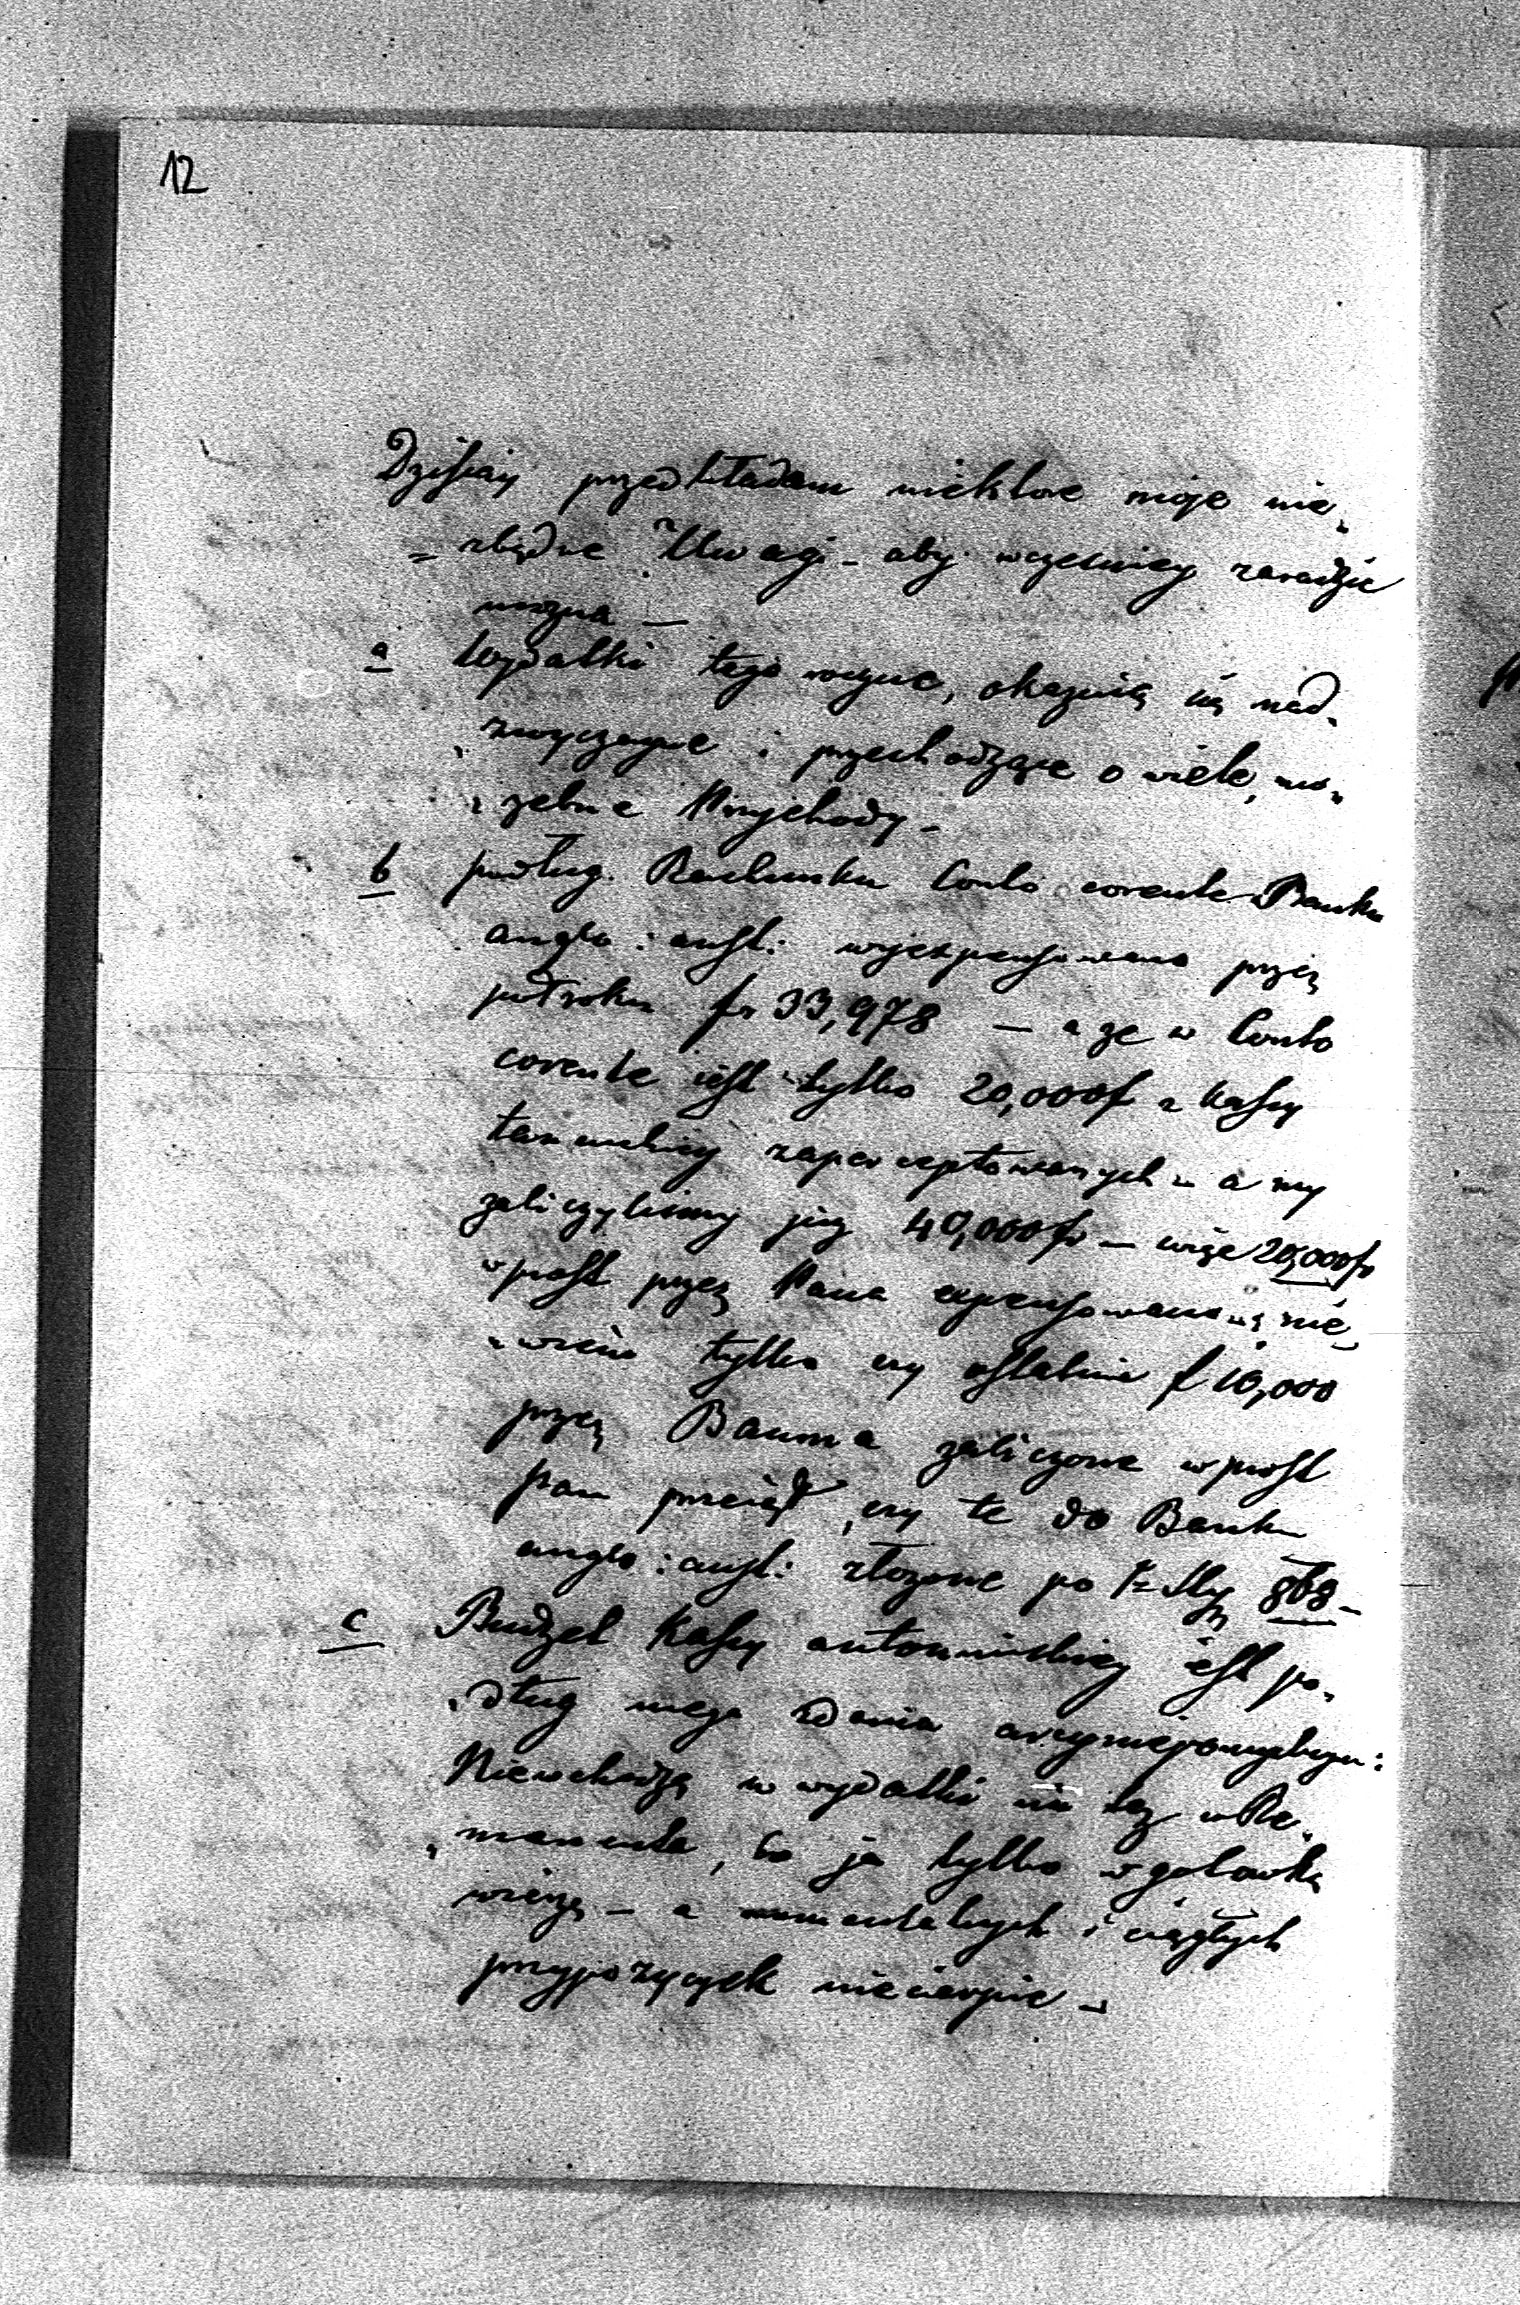 12
Dzisiay przedkładam niektóre moje nie„
„zbędne Uwagi – aby wcześniey zaradzić
można –
a Wydatki tego roczne, okazuią się nad„
„zwyczayne i przechodzące o wiele, mo„
„żebne Przychody –
b podług Rachunku Conto corente Banku
anglo : aust : wyexpensowano przez
półroku fr 33,978 – a że w Conto
corente iest tylko 20,000 f z Kassy
tarnuskiey zaperceptowanych – a my
zaliczyliśmy już 40,000 fr – więc 20,000 fr
wprost przez Pana expensowane są, nie„
„wiem tylko czy ostatnie f 10,000
przez Bauma zaliczone wprost
pan wziął, czy te do Banku
anglo : aust : złożone po 868 –
c Budżet Kassy antonińskiey iest po„
„dług mego zdania arcyniepomyślnym :
Niewchodzę w wydatki ani też w Re„
„manenta, bo ja tylko w gotówkę
wierzę – a momentalnych i ciągłych
przypożyczek niecierpię –